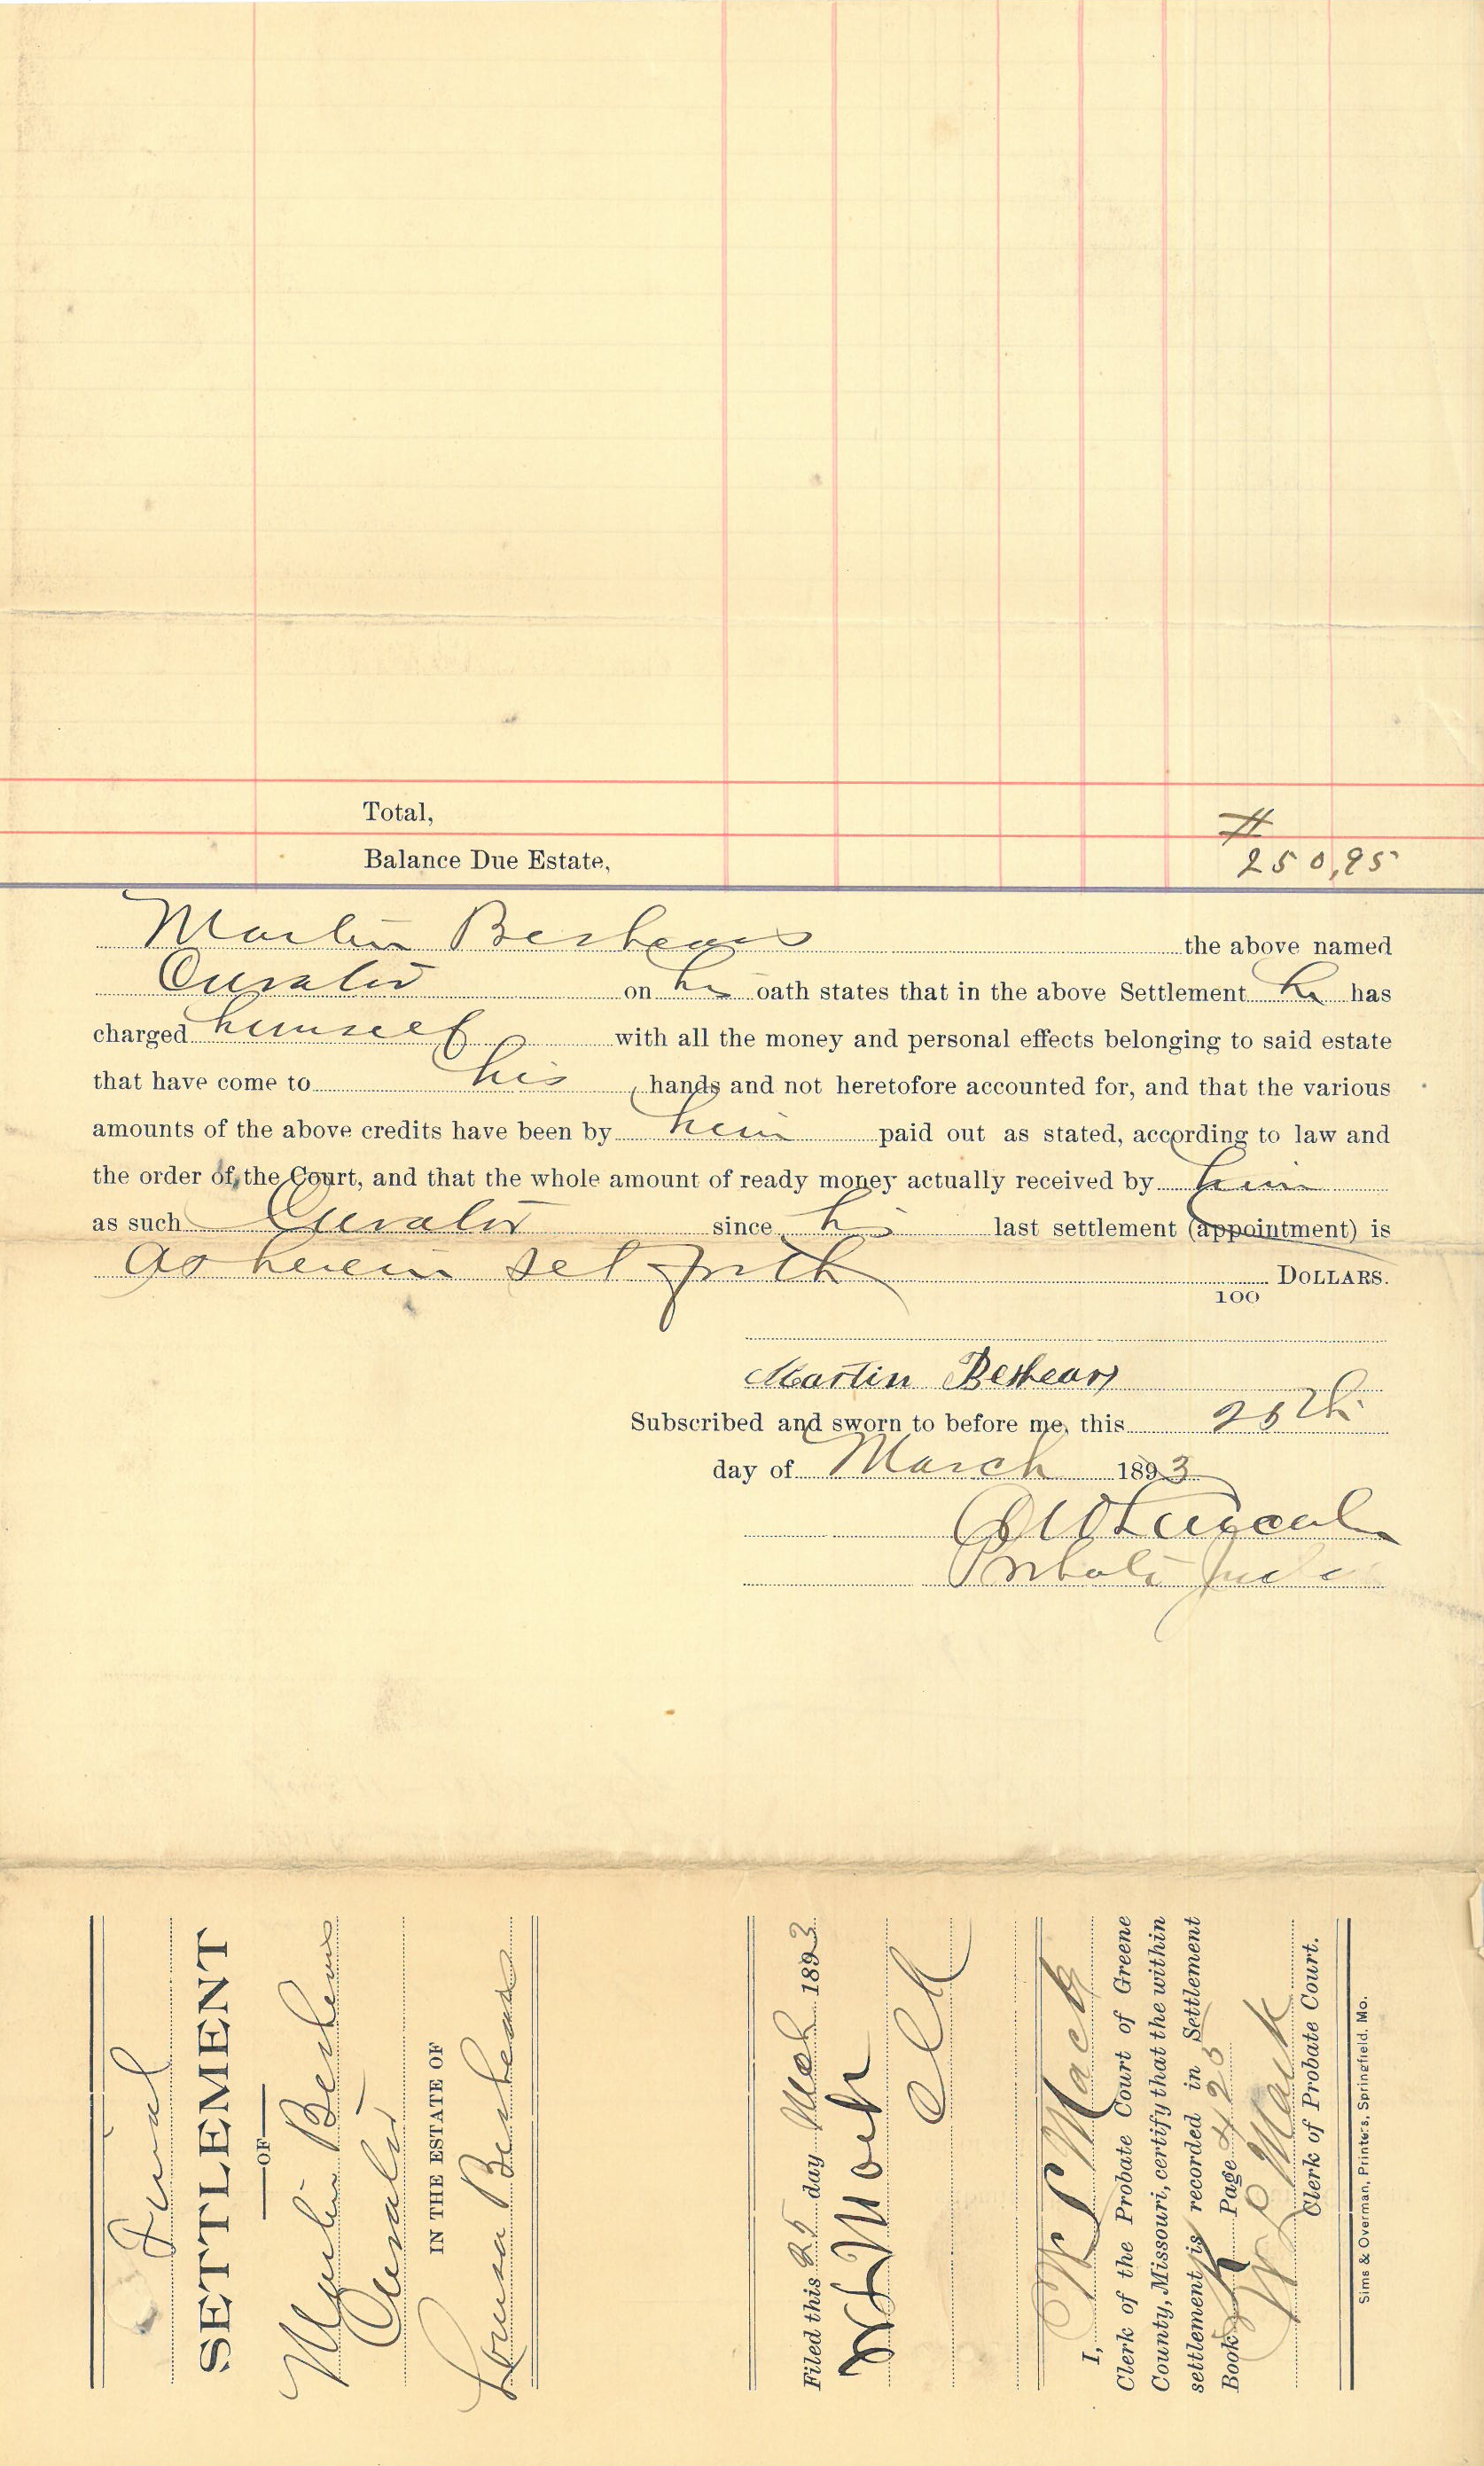 Total,
#
Balance Due Estate, 250,95
Martin Beshears the above named
Curator on his oath states that in the above Settlement he has
charged himself with all the money and personal effects belonging to said estate
that have come to his hands and not heretofore accounted for, and that the various
amounts of the above credits have been by him paid out as stated, according to law and
the order of the Court, and that the whole amount of ready money actually received by him
as such Curator since his last settlement (appointment) is
as herein set forth DOLLARS.
100
Martin Beshears
Subscribed and sworn to before me, this 25th
day of March 1893
Probate Judge
Final
SETTLEMENT
—OF—
Martin Beshears
Curator
IN THE ESTATE OF
Louisa Beshears
Filed this 25 day Mch 1893
W L Mack
Clk
I, W L Mack
Clerk of the Probate Court of Greene
County, Missouri, certify that the within
settlement is recorded in Settlement
Book K Page 423
W L Mack
Clerk of Probate Court.
Sims & Overman, Printers, Springfield, Mo.